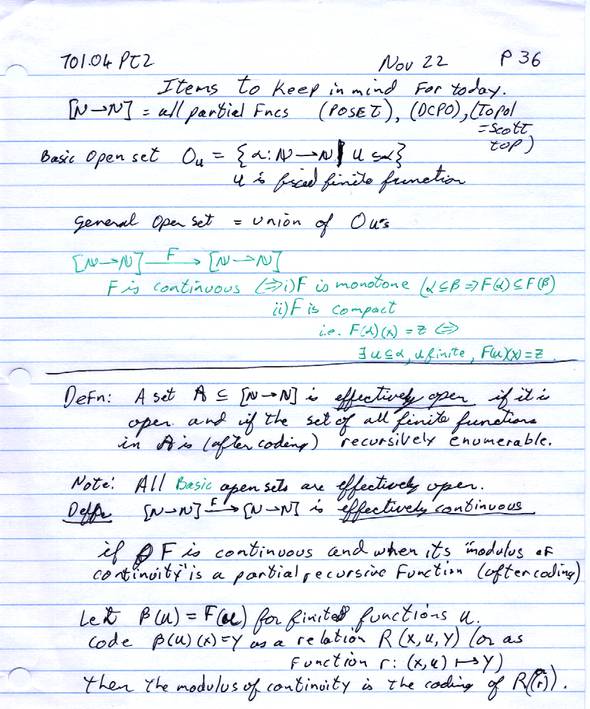 701.04 PT2 Nov 22 P 36
Items to keep in mind for today.
[N→N] = all partial Fncs (POSET), (DCPO), (Topol
=Scott
top)
Basic open set O_u = {α: N→N | u ⊆ α}
u is fixed finite function
general open set = union of O_u's
[N→N] —F→ [N→N]
F is continuous ⟺ i) F is monotone (α ⊆ β ⇒ F(α) ⊆ F(β))
ii) F is compact
i.e. F(α)(x) = z ⟺
∃ u ⊆ α, u finite, F(u)(x) = z
Defn: A set A ⊆ [N→N] is effectively open if it is
open and if the set of all finite functions
in A is (after coding) recursively enumerable.
Note: All Basic open sets are effectively open.
Deffn [N→N] —F→ [N→N] is effectively continuous
if F is continuous and when its "modulus of
continuity" is a partial recursive Function (after coding)
Let β(u) = F(u) for finite functions u.
code β(u)(x)=y as a relation R(x,u,y) (or as
function r: (x,u) ↦ y)
then the modulus of continuity is the coding of R (r).